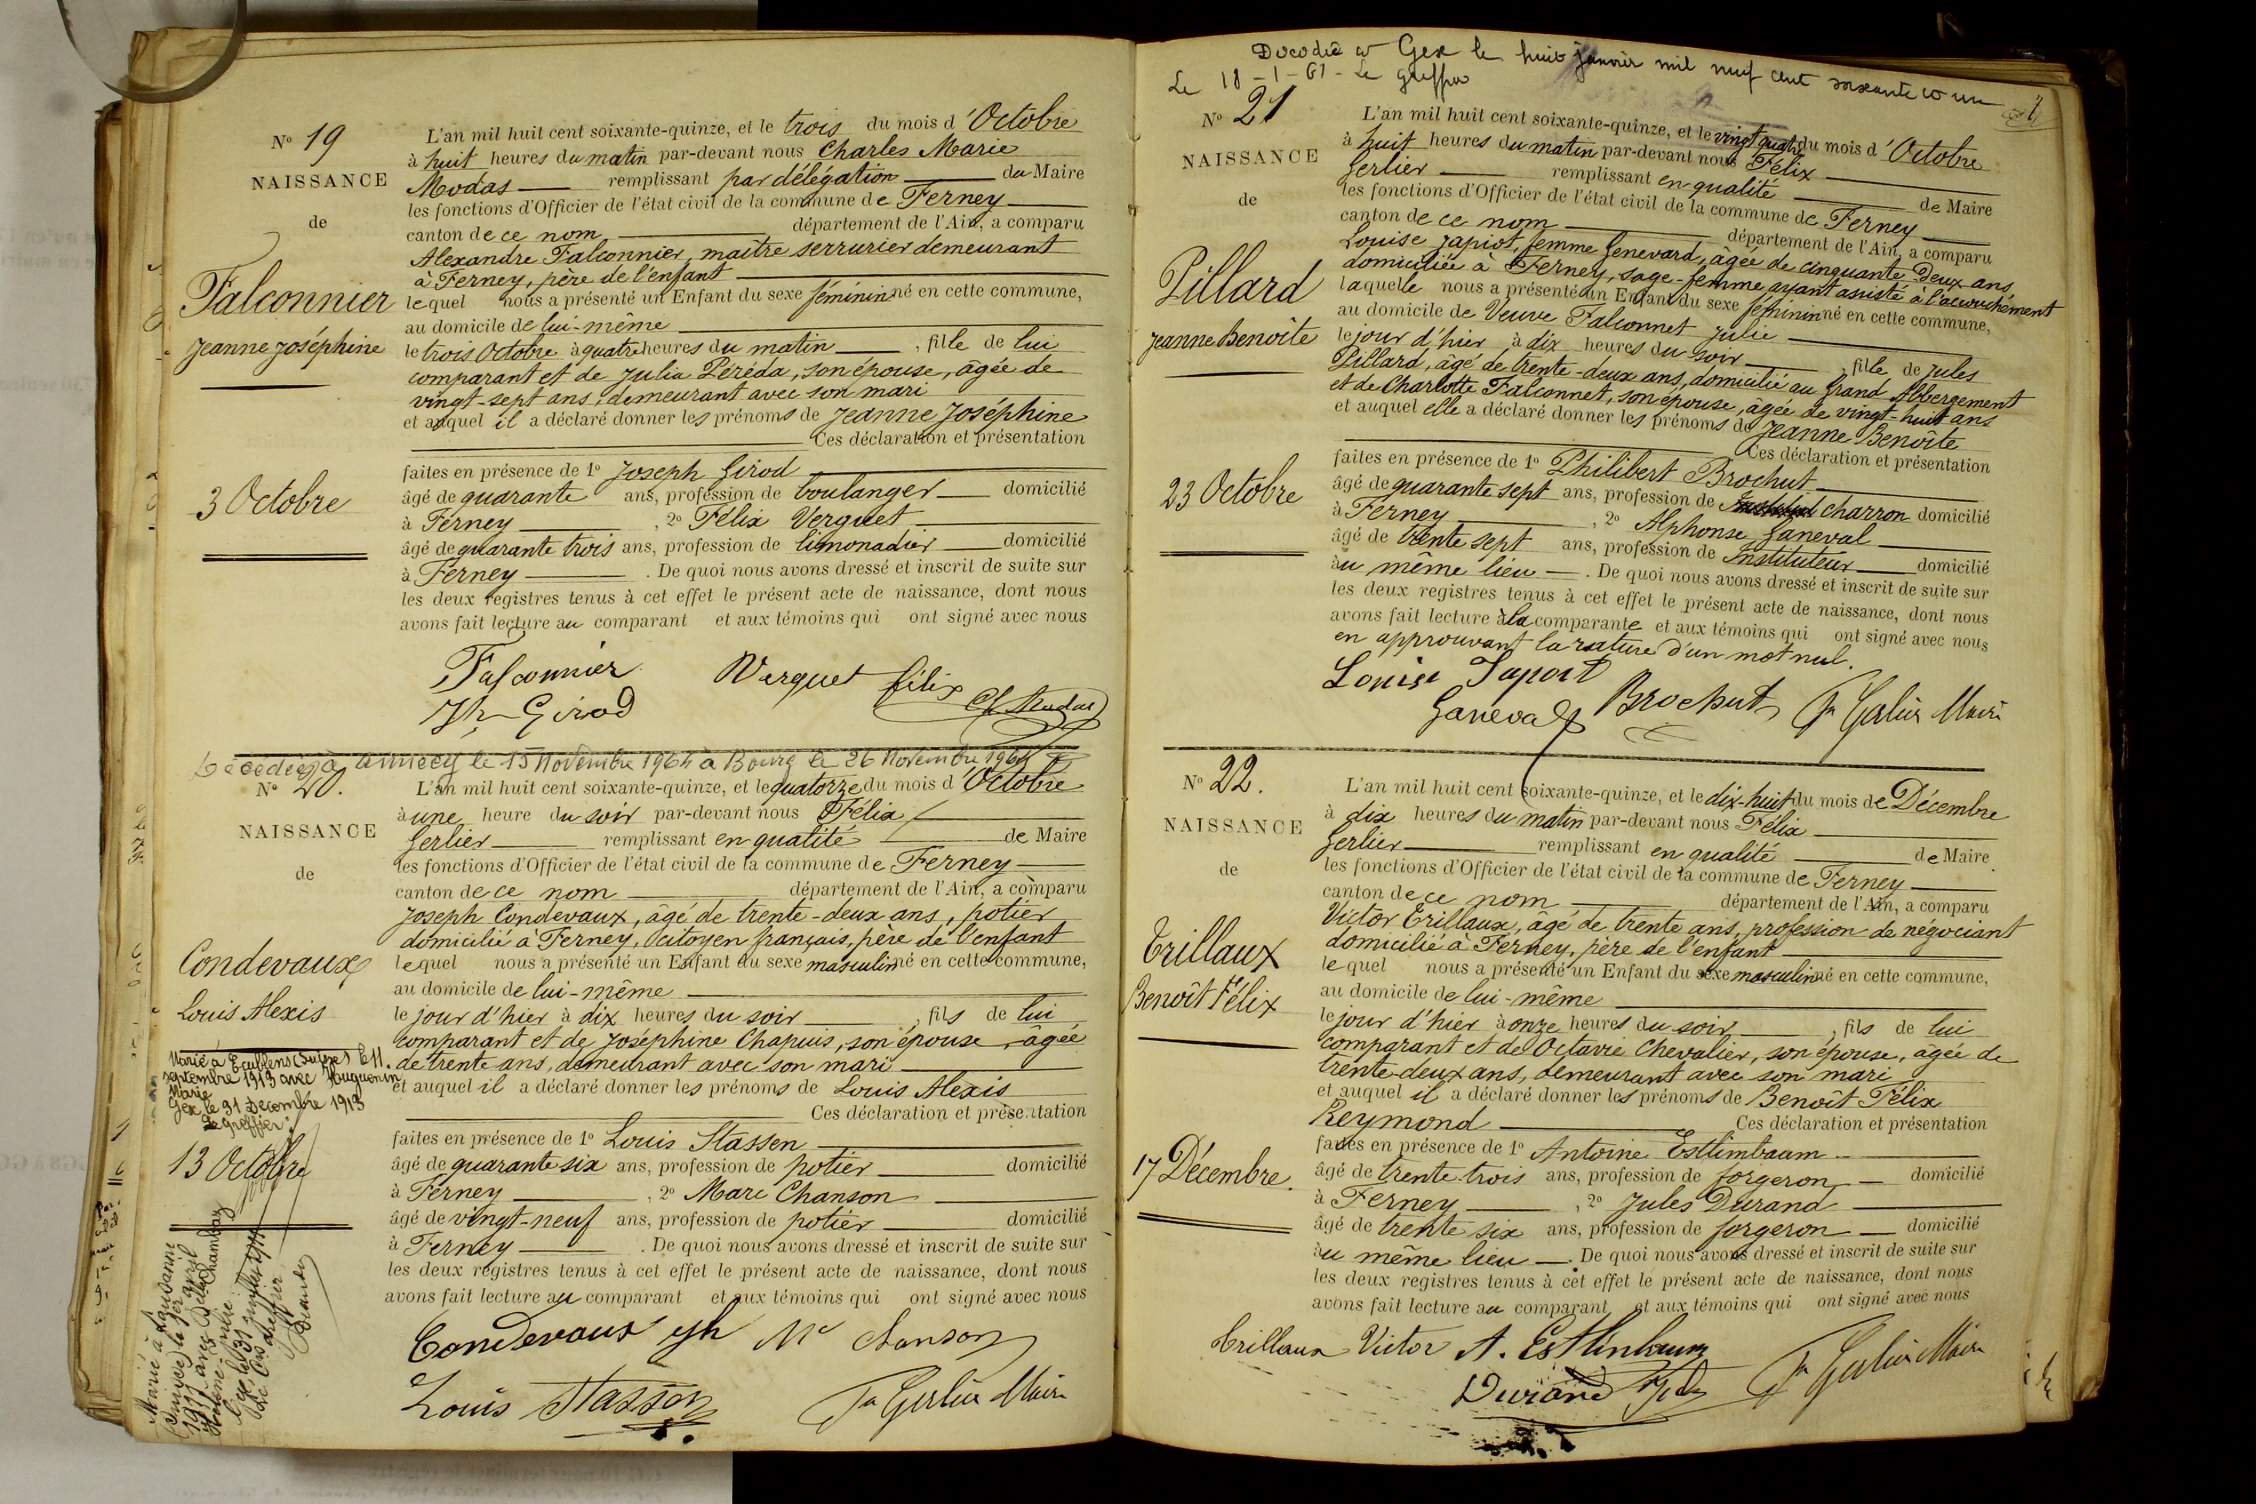 No 19
NAISSANCE
de
Falconnier
Jeanne Joséphine
3 Octobre
L'an mil huit cent soixante-quinze, et le trois du mois d'Octobre
à huit heures du matin par-devant nous Charles Marie
Modas remplissant par délégation du Maire
les fonctions d'Officier de l'état civil de la commune de Ferney
canton de ce nom département de l'Ain, a comparu
Alexandre Falconnier, maître serrurier demeurant
à Ferney, père de l'enfant
lequel nous a présenté un Enfant du sexe féminin né en cette commune,
au domicile de lui-même
le trois Octobre à quatre heures du matin, fille de lui
comparant et de Julia Péréda, son épouse, âgée de
vingt-sept ans, demeurant avec son mari
et auquel il a déclaré donner les prénoms de Jeanne Joséphine
Ces déclaration et présentation
faites en présence de 1o Joseph Girod
âgé de quarante ans, profession de boulanger domicilié
à Ferney, 2o Félix Verguet
âgé de quarante trois ans, profession de limonadier domicilié
à Ferney. De quoi nous avons dressé et inscrit de suite sur
les deux registres tenus à cet effet le présent acte de naissance, dont nous
avons fait lecture au comparant et aux témoins qui ont signé avec nous
Falconnier Verguet félix
Jh Girod
Décédé à Annecy le 15 Novembre 1964 à Bourg le 26 Novembre 1964
No 20.
NAISSANCE
de
Condevaux
Louis Alexis
Marié à Ecublens (Suisse) le 11
septembre 1913 avec Huguenin
Marie
Gex le 31 Décembre 1913
Le greffier
13 Octobre
Marié à Lausanne
(Suisse) le 1er avril
L'an mil huit cent soixante-quinze, et le quatorze du mois d'Octobre
à une heure du soir par-devant nous Félix
Gerlier remplissant en qualité de Maire
les fonctions d'Officier de l'état civil de la commune de Ferney
canton de ce nom département de l'Ain, a comparu
Joseph Condevaux, âgé de trente-deux ans, potier
domicilié à Ferney, citoyen français, père de l'enfant
lequel nous a présenté un Enfant du sexe masculin né en cette commune,
au domicile de lui-même
le jour d'hier à dix heures du soir, fils de lui
comparant et de Joséphine Chapuis, son épouse, âgée
de trente ans, demeurant avec son mari
et auquel il a déclaré donner les prénoms de Louis Alexis
Ces déclaration et présentation
faites en présence de 1o Louis Stassen
âgé de quarante six ans, profession de potier domicilié
à Ferney, 2o Marc Chanson
âgé de vingt-neuf ans, profession de potier domicilié
à Ferney. De quoi nous avons dressé et inscrit de suite sur
les deux registres tenus à cet effet le présent acte de naissance, dont nous
avons fait lecture au comparant et aux témoins qui ont signé avec nous
Condevaux jh Mc Chanson
Louis Stassen Fx Gerlier Maire
Décédée à Gex le huit janvier mil neuf cent soixante et un
Le 18-1-61 - Le greffier
No 21
NAISSANCE
de
Pillard
Jeanne Benoîte
23 Octobre
L'an mil huit cent soixante-quinze, et le vingt quatre du mois d'Octobre
à huit heures du matin par-devant nous Félix
Gerlier remplissant en qualité de Maire
les fonctions d'Officier de l'état civil de la commune de Ferney
canton de ce nom département de l'Ain, a comparu
Louise Japiot, femme Genevard, âgée de cinquante-Deux ans
domiciliée à Ferney, sage-femme ayant assisté à l'accouchement
laquelle nous a présenté un Enfant du sexe féminin né en cette commune,
au domicile de Veuve Falconnet Julie
le jour d'hier à dix heures du soir fille de Jules
Pillard, âgé de trente-deux ans, domicilié au Grand Abbergement
et de Charlotte Falconnet, son épouse, âgée de vingt-huit ans
et auquel elle a déclaré donner les prénoms de Jeanne Benoîte
Ces déclaration et présentation
faites en présence de 1o Philibert Brochut
âgé de quarante sept ans, profession de charron domicilié
à Ferney, 2o Alphonse Ganeval
âgé de trente sept ans, profession de Instituteur domicilié
au même lieu. De quoi nous avons dressé et inscrit de suite sur
les deux registres tenus à cet effet le présent acte de naissance, dont nous
avons fait lecture à la comparante et aux témoins qui ont signé avec nous
en approuvant la rature d'un mot nul.
Louise Japiot
Ganeval Brochut Fx Gerlier Maire
No 22.
NAISSANCE
de
Trillaux
Benoît Félix
17 Décembre.
L'an mil huit cent soixante-quinze, et le dix-huit du mois de Décembre
à dix heures du matin par-devant nous Félix
Gerlier remplissant en qualité de Maire
les fonctions d'Officier de l'état civil de la commune de Ferney
canton de ce nom département de l'Ain, a comparu
Victor Trillaux, âgé de trente ans, profession de négociant
domicilié à Ferney, père de l'enfant
lequel nous a présenté un Enfant du sexe masculin né en cette commune,
au domicile de lui-même
le jour d'hier à onze heures du soir, fils de lui
comparant et de Octavie Chevalier, son épouse, âgée de
trente-deux ans, demeurant avec son mari
et auquel il a déclaré donner les prénoms de Benoît Félix
Reymond Ces déclaration et présentation
faites en présence de 1o Antoine Estlimbaum
âgé de trente-trois ans, profession de forgeron domicilié
à Ferney, 2o Jules Durand
âgé de trente six ans, profession de forgeron domicilié
au même lieu. De quoi nous avons dressé et inscrit de suite sur
les deux registres tenus à cet effet le présent acte de naissance, dont nous
avons fait lecture au comparant et aux témoins qui ont signé avec nous
Trillaux Victor A. Estlinbaum
Durand Fx Gerlier Maire